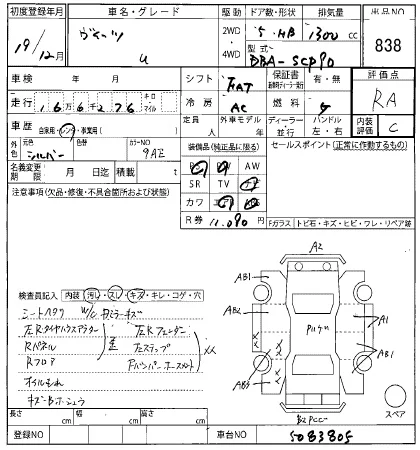 初度登録年月 車名・グレード 駆動 ドア数・形状 排気量 出品NO
19/12月 ヴィッツ U 2WD 4WD 5 HB 1300 cc 838
型式 DBA-SCP90
車検 年 月 シフト FAT 保証書 有・無 評価点
走行 1 6 6 2 7 6 キロ マイル 冷房 AC 燃料 RA
車歴 自家用・レンタ・事業用( ) 定員 人 外車モデル 年 ディーラー・並行 ハンドル 左・右 内装評価 C
外色 元色 シルバー カラーNO 9AE 装備品(純正品に限る) セールスポイント(正常に作動するもの)
名義変更期限 月 日 積載 t PS PW AW
SR TV ナビ
注意事項(欠品・修復・不具合箇所および状態) カワ エアB
R券 11,090 円 Fガラス トビ石・キズ・ヒビ・ワレ・リペア跡
検査員記入 内装 汚レ・スレ・キズ・キレ・コゲ・穴
左Rタイヤハウスアウター
Rパネル 左ステップ
Rフロア
オイルもれ
A2
AB1
AB2
A1
AB1
AB3
スペア
長さ cm 幅 cm 高さ cm
登録NO 車台NO 5083805